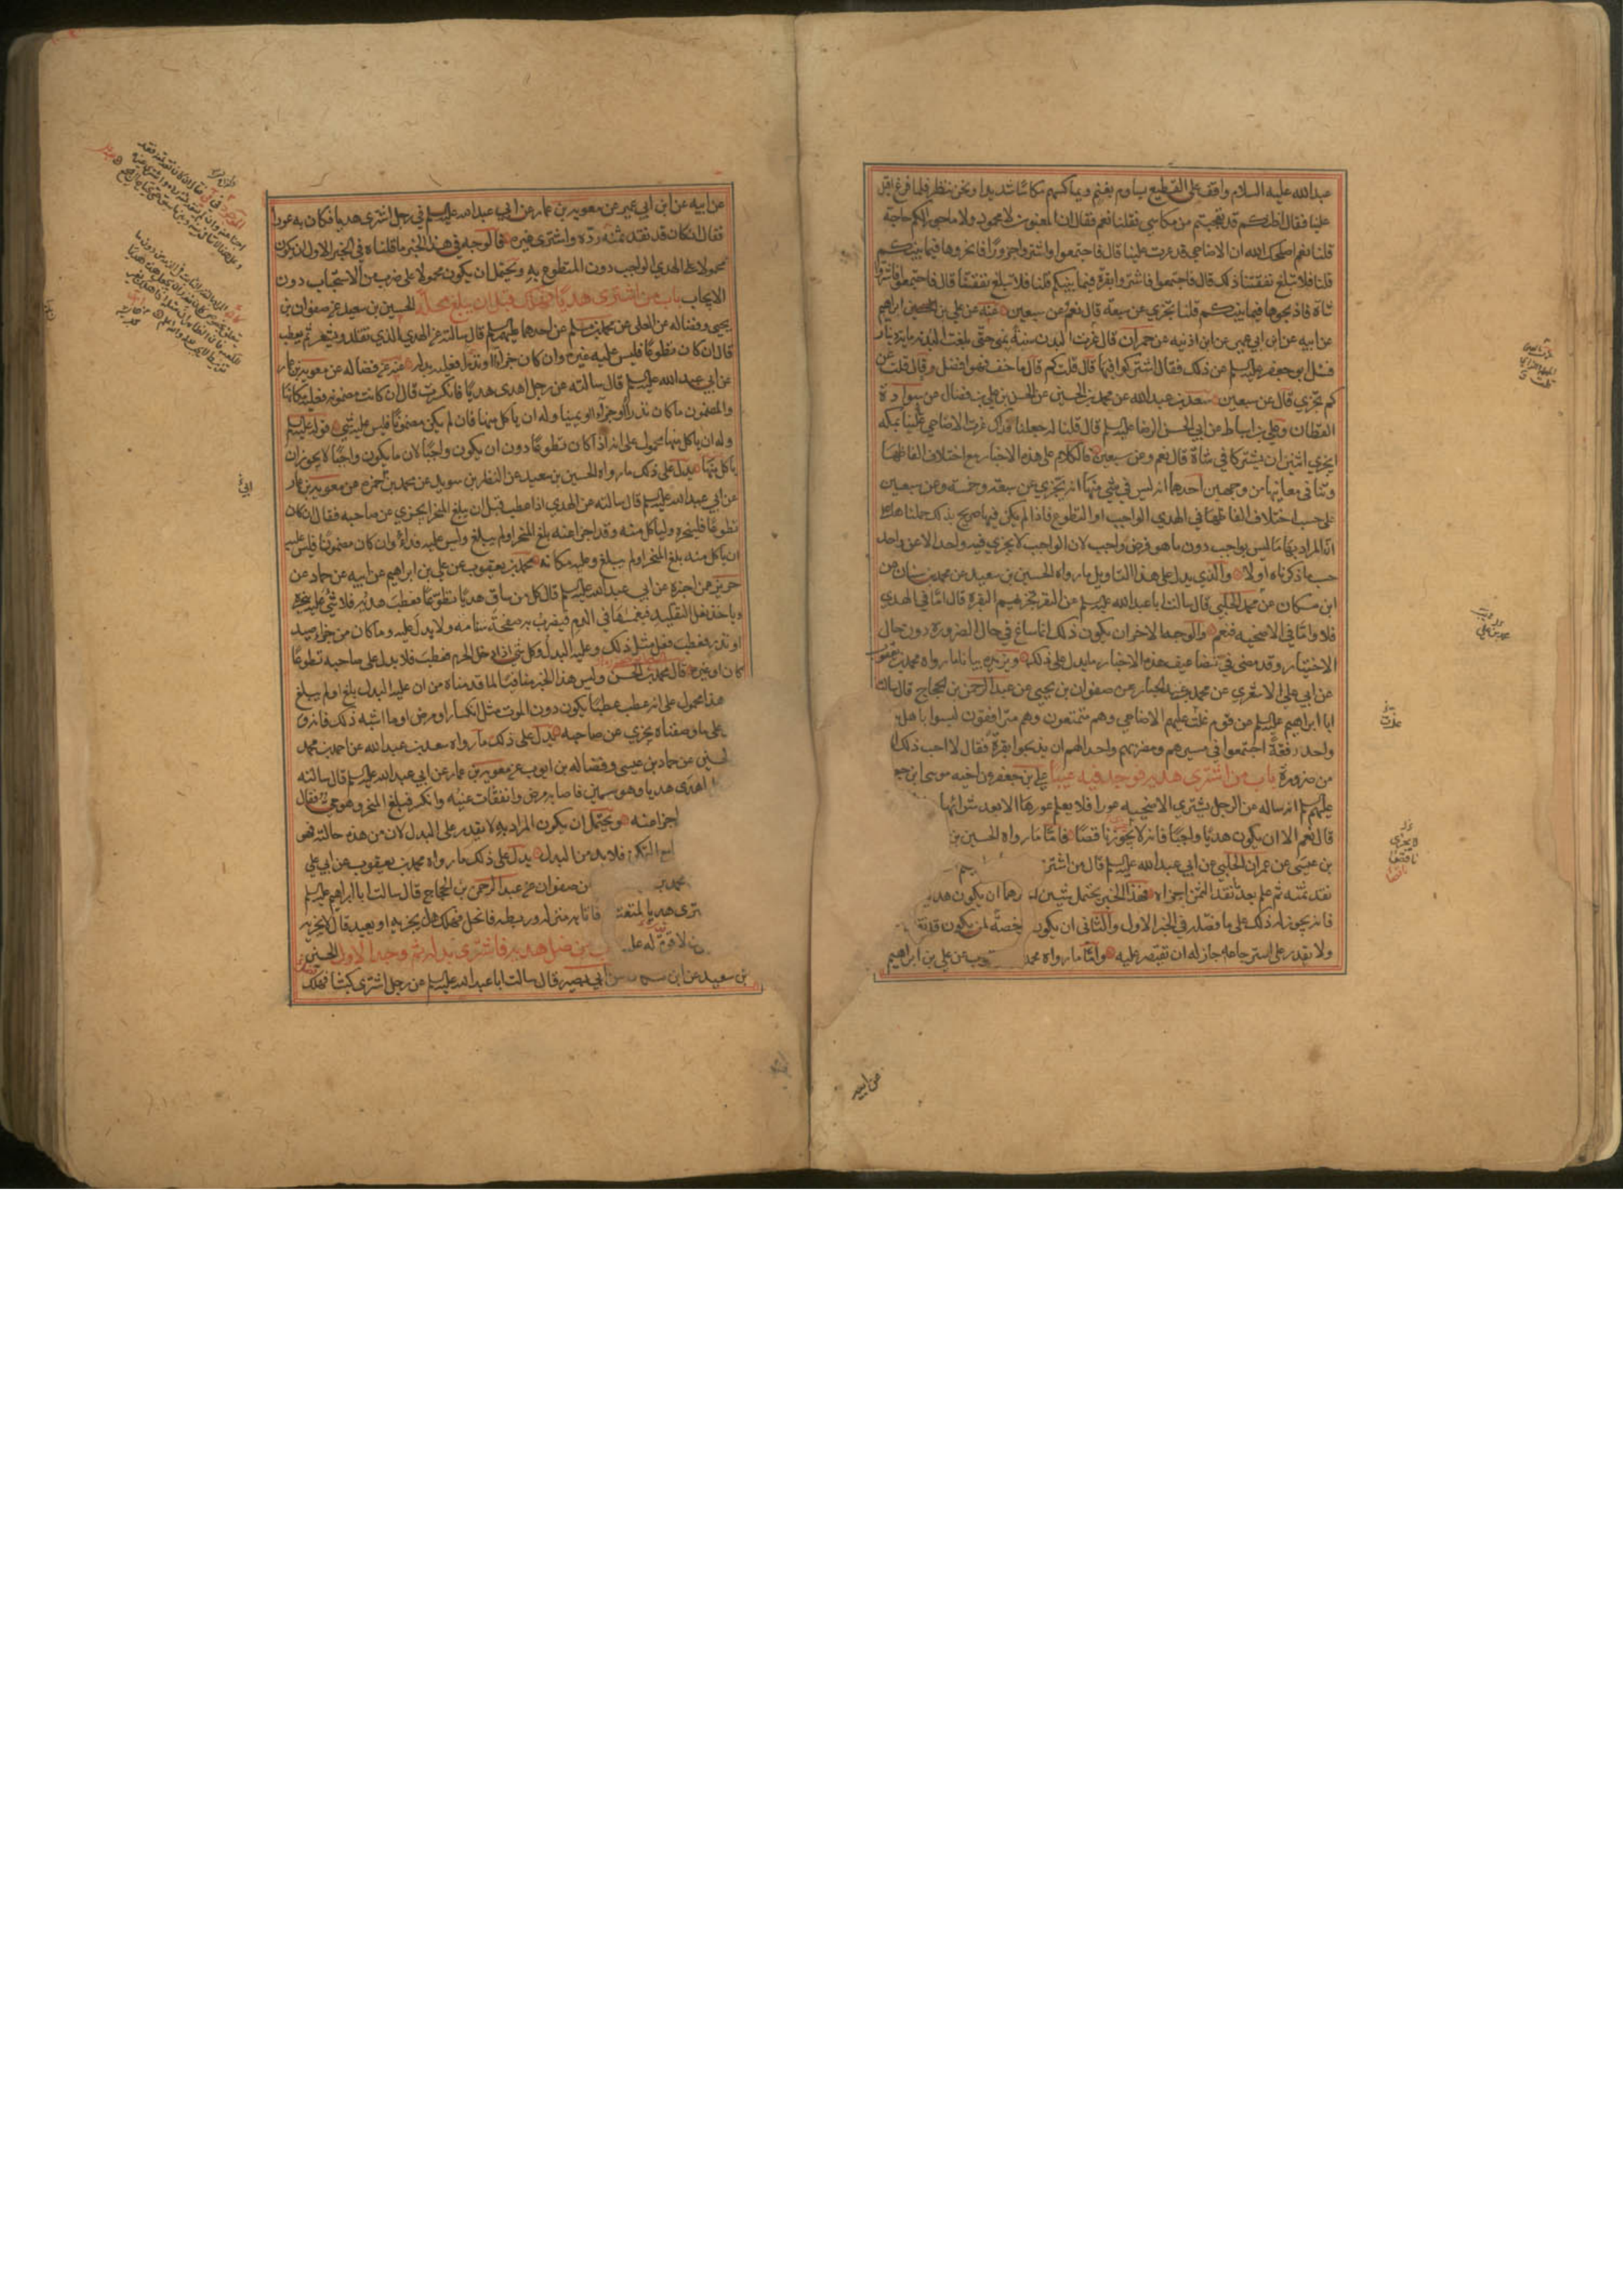 عبدالله عليه السلام واقف على القطيع يساوم بغنم ويماكسهم مكاسا شديدا ونحن ننظر فلما فرغ اقبل
علينا فقال اظنكم قد تعجبتم من مكاسي فقلنا نعم فقال ان المغبون لا محمود ولا ماجور الكم حاجة
قلنا نعم اصلحك الله ان الاضاحي قد عزت علينا قال فاجتمعوا واشتروا جزورا فانحروها فيما بينكم
قلنا فلا تبلغ نفقتنا ذلك قال فاجتمعوا فاشتروا بقرة فيما بينكم قلنا فلا تبلغ نفقتنا قال فاجتمعوا فاشتروا
شاة فاذبحوها فيما بينكم قلنا تجزي عن سبعة قال نعم وعن سبعين عنه عن علي بن ابراهيم
عن ابيه عن ابن ابي عمير عن ابن اذينه عن حمران قال عزت البدن سنة بمنى حتى بلغت البدنة ماية دينار
فسئل ابو جعفر عليه السلم عن ذلك فقال اشتركوا فيها قال قلت كم قال ما خف فهو افضل وقال قلت عن
كم تجزي قال عن سبعين سعد بن عبدالله عن محمد بن الحسين عن الحسن بن علي بن فضال عن سوادة
القطان وعلي بن اسباط عن ابي الحسن الرضا عليه السلم قال قلنا له جعلنا فداك عزت الاضاحي علينا بمكه
ايجزي اثنين ان يشتركا في شاة قال نعم وعن سبعين فالكلام على هذه الاخبار مع اختلاف الفاظها
وتنافي معانيها من وجهين احدهما انه ليس في شي منها انه تجزي عن سبعة وخمسة وعن سبعين
على حسب اختلاف الفاظها في الهدي الواجب او التطوع فاذا لم يكن فيها صريح بذلك حملناها على
ان المراد بها ما ليس بواجب دون ما هو فرض واجب لان الواجب لا يجزي فيه واحد الا عن واحد
حسب ما ذكرناه اولا والذي يدل على هذا التاويل ما رواه الحسين بن سعيد عن محمد بن سنان عن
ابن مسكان عن محمد الحلبي قال سالت ابا عبدالله عليه السلم عن النفر تجزيهم البقرة قال اما في الهدي
فلا واما في الاضحيه فنعم والوجه الاخر ان يكون ذلك انما ساغ في حال الضرورة دون حال
الاختيار وقد مضى في تضاعيف هذه الاخبار ما يدل على ذلك ويزيده بيانا ما رواه محمد بن يعقوب
عن ابي علي الاشعري عن محمد بن عبد الجبار عن صفوان بن يحيى عن عبد الرحمن بن الحجاج قال سالت
ابا ابراهيم عليه السلم عن قوم غلت عليهم الاضاحي وهم متمتعون وهم مترافقون ليسوا باهل بيت
واحد رفقة اجتمعوا في مسيرهم ومضربهم واحد الهم ان يذبحوا بقرة فقال لا احب ذلك الا
من ضرورة باب من اشترى هديه فوجد فيه عيبا علي بن جعفر عن اخيه موسى بن جعفر
عليهم السلم انه ساله عن الرجل يشتري الاضحيه عورا فلا يعلم عورها الا بعد شرائها
قال نعم الا ان يكون هديا واجبا فانه لا يجوز ناقصا فاما ما رواه الحسين بن
بن عيسى عن عمران الحلبي عن ابي عبدالله عليه السلم قال من اشترى
نقد ثمنه ثم علم بعد ما نقد الثمن اجزاه فهذا الخبر يحتمل شيئين احدهما ان يكون هديه
فانه يجوز له ذلك على ما فصله في الخبر الاول والثاني ان يكون رخصة لمن يكون قد نقد
ولا يقدر على استرجاعه جاز له ان يقتصر عليه واما ما رواه محمد بن يعقوب عن علي بن ابراهيم
عن ابيه
عن ابيه عن ابن ابي عمير عن معويه بن عمار عن ابي عبدالله عليه السلم في رجل اشترى هديا فكان به عورا
فقال ان كان قد نقد ثمنه رده واشترى غيره فالوجه في هذا الخبر ما قلناه في الخبر الاول ان يكون
محمولا على الهدي الواجب دون المتطوع به ويحتمل ان يكون محمولا على ضرب من الاستحباب دون
الايجاب باب من اشترى هديا فهلك قبل ان يبلغ محله الحسين بن سعيد عن صفوان بن
يحيى وفضاله عن العلى عن محمد بن مسلم عن احدهما عليهما السلم قال سالته عن الهدي الذي يقلد ويشعر ثم يعطب
قال ان كان تطوعا فليس عليه غيره وان كان جزاءا او نذرا فعليه بدله عنه عن فضاله عن معويه بن عمار
عن ابي عبدالله عليه السلم قال سالته عن رجل اهدى هديا فانكسرت قال ان كانت مضمونه فعليه مكانها
والمضمون ما كان نذرا او جزاءا او يمينا وله ان ياكل منها فان لم يكن مضمونا فليس عليه شي قوله عليه السلم
وله ان ياكل منها محمول على انه اذا كان تطوعا دون ان يكون واجبا لان ما يكون واجبا لا يجوز ان
ياكل منها يدل على ذلك ما رواه الحسين بن سعيد عن النضر بن سويد عن محمد بن ابي حمزه عن معويه بن عمار
عن ابي عبدالله عليه السلم قال سالته عن الهدي اذا عطب قبل ان يبلغ المنحر ايجزي عن صاحبه فقال ان كان
تطوعا فلينحره ولياكل منه وقد اجزا عنه بلغ المنحر او لم يبلغ وليس عليه فداء وان كان مضمونا فليس عليه
ان ياكل منه بلغ المنحر او لم يبلغ وعليه مكانه محمد بن يعقوب عن علي بن ابراهيم عن ابيه عن حماد عن
حريز عمن اخبره عن ابي عبدالله عليه السلم قال كل من ساق هديا تطوعا فعطب هديه فلا شي عليه ينحره
وياخذ نعل التقليد فيغمسها في الدم فيضرب به صفحة سنامه ولا بدل عليه وما كان من جزاء صيد
او نذر فعطب فعل مثل ذلك وعليه البدل وكل شي اذا دخل الحرم فعطب فلا بدل على صاحبه تطوعا
كان او غيره قال محمد بن الحسن وليس هذا الخبر منافيا لما قدمناه من ان عليه البدل بلغ او لم يبلغ
هذا محمول على انه عطب عطبا يكون دون الموت مثل انكسار او مرض او ما اشبه ذلك فانه
على ما وصفناه يجزي عن صاحبه يدل على ذلك ما رواه سعد بن عبدالله عن احمد بن محمد
الحسين عن حماد بن عيسى وفضاله بن ايوب عن معويه بن عمار عن ابي عبدالله عليه السلم قال سالته
اهدى هديا وهو سمين فاصابه مرض وانفقات عينه وانكسر فبلغ المنحر وهو حي فقال
اجزا عنه ويحتمل ان يكون المراد به لا يقدر على البدل لان من هذه حالته فهو
مع التمكن فلا بد من البدل يدل على ذلك ما رواه محمد بن يعقوب عن ابي علي
محمد بن صفوان عن عبد الرحمن بن الحجاج قال سالت ابا ابراهيم عليه السلم
اشترى هديا لمتعته فاتا به منزله وربطه فانحل فهلك هل يجزيه او يعيد قال لا يجزيه
ان لا قوة له عليه باب من ضل هديه فاشترى بدله ثم وجد الاول الحسين
بن سعيد عن ابن سنان عن ابي بصير قال سالت ابا عبدالله عليه السلم عن رجل اشترى كبشا فهلك